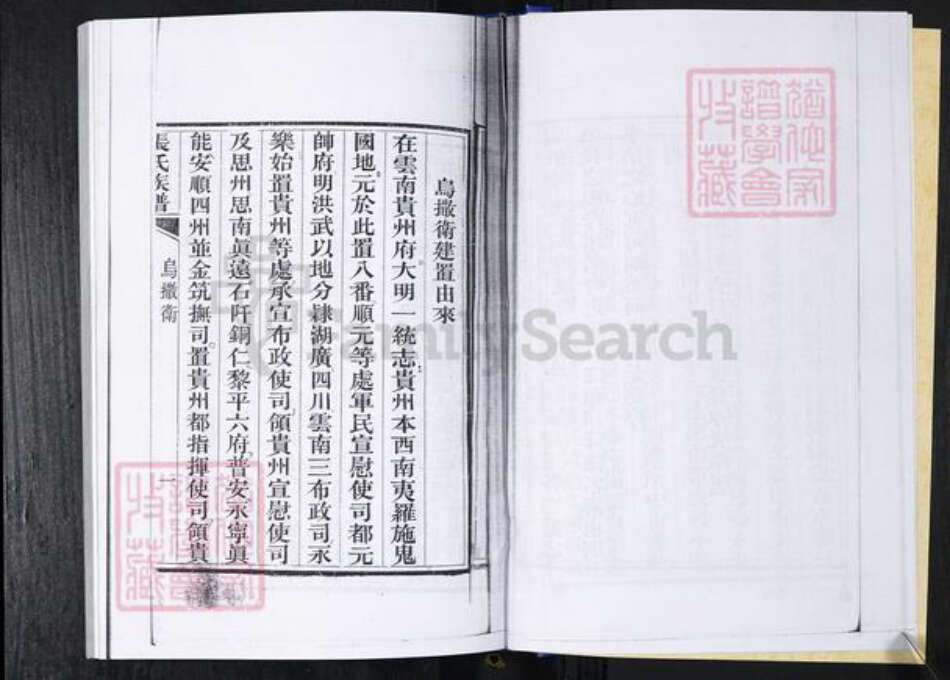 烏撒衛建置由來
在雲南貴州府大明一統志貴州本西南夷羅施鬼
國地元於此置八番順元等處軍民宣慰使司都元
帥府明洪武以地分隸湖廣四川雲南三布政司永
樂始置貴州等處承宣布政使司領貴州宣慰使司
及思州思南眞遠石阡銅仁黎平六府普安永寧眞
能安順四州並金筑撫司置貴州都指揮使司領貴
張氏族譜
烏撒衛
一
FamilySearch
譜學會
收藏